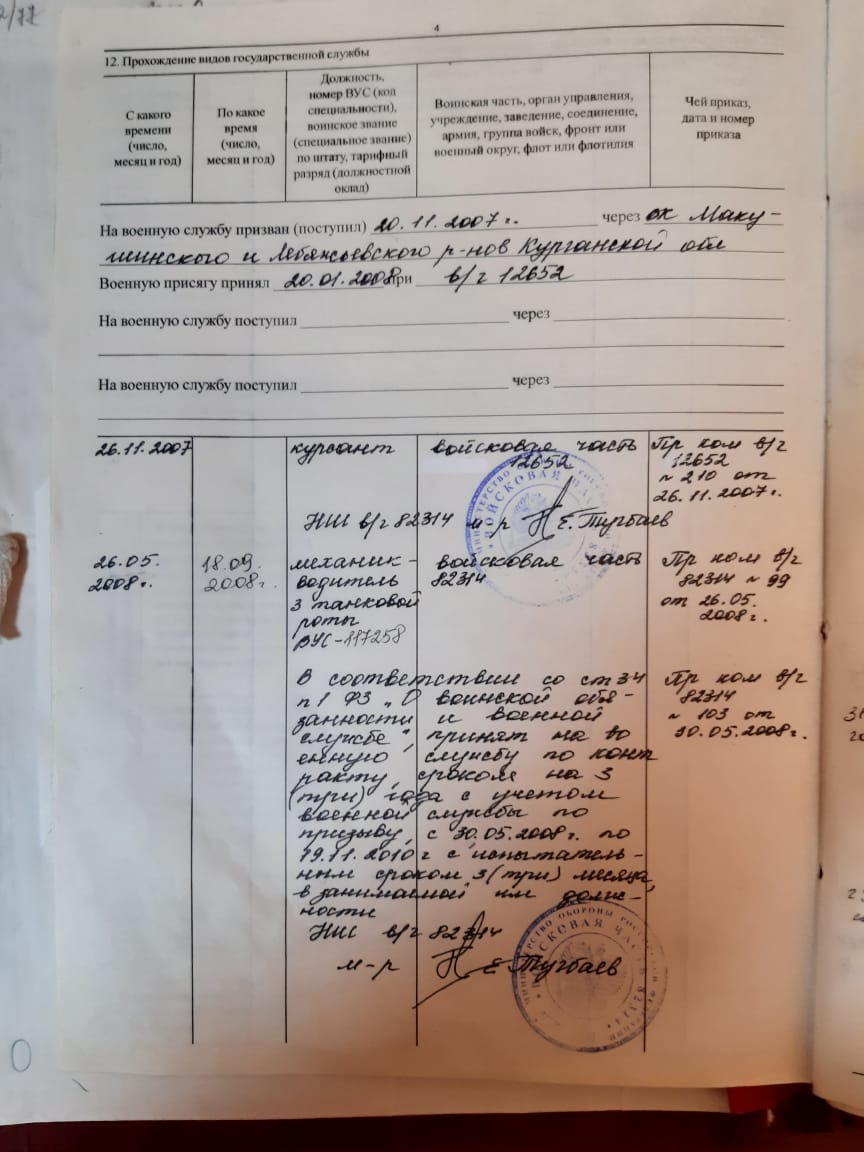 2/77
4
12. Прохождение видов государственной службы
С какого времени (число, месяц и год)
По какое время (число, месяц и год)
Должность, номер ВУС (код специальности), воинское звание (специальное звание) по штату, тарифный разряд (должностной оклад)
Воинская часть, орган управления, учреждение, заведение, соединение, армия, группа войск, фронт или военный округ, флот или флотилия
Чей приказ, дата и номер приказа
На военную службу призван (поступил) 20.11.2007 г. через ОК Маку-
шинского и Лебяжьевского р-нов Курганской обл
Военную присягу принял 20.01.2008 при в/ч 12652
На военную службу поступил через
На военную службу поступил через
26.11.2007 курсант войсковая часть Пр ком в/ч
12652 12652
№ 210 от
26.11.2007 г.
НШ в/ч 82314 м-р Е. Тугбаев
26.05. 18.09. механик- войсковая часть Пр ком в/ч
2008 г. 2008 г. водитель 82314 82314 № 99
3 танковой от 26.05.
роты 2008 г.
ВУС-117258
В соответствии со ст 34 Пр ком в/ч
п 1 ФЗ „О воинской обя- 82314
занности и военной № 103 от
службе", принят на во 30.05.2008 г.
енную службу по конт
ракту, сроком на 3
(три) года с учетом
военной службы по
призыву, с 30.05.2008 г. по
19.11.2010 г с испытатель-
ным сроком 3 (три) месяца,
в занимаемой им долж-
ности
НШ в/ч 82314
м-р Е Тугбаев
МИНИСТЕРСТВО ОБОРОНЫ РОССИЙСКОЙ ФЕДЕРАЦИИ
ВОЙСКОВАЯ ЧАСТЬ 82314